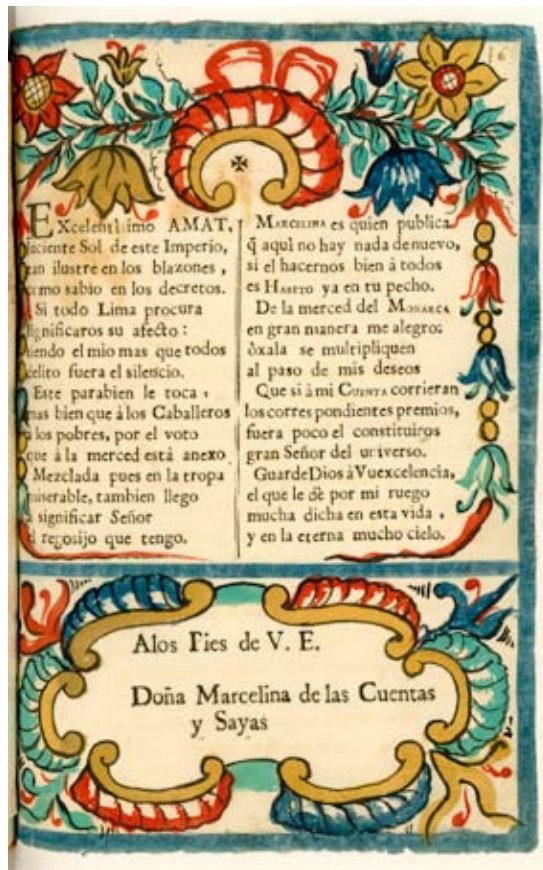 16
EXcelentissimo AMAT,
luciente Sol de este Imperio,
tan ilustre en los blazones ,
como sabio en los decretos.
Si todo Lima procura
significaros su afecto :
siendo el mio mas que todos
delito fuera el silencio.
Este parabien le toca ,
mas bien que à los Caballeros
à los pobres, por el voto
que à la merced está anexo
Mezclada pues en la tropa
miserable, tambien llego
à significar Señor
el regosijo que tengo.
MARCELINA es quien publica
q̃ aquì no hay nada de nuevo,
si el hacernos bien à todos
es HABITO ya en tu pecho.
De la merced del MONARCA
en gran manera me alegro:
òxala se multipliquen
al paso de mis deseos
Que si à mi CUENTA corrieran
los correspondientes premios,
fuera poco el constituiros
gran Señor del universo.
Guarde Dios à Vuexcelencia,
el que le dè por mi ruego
mucha dicha en esta vida ,
y en la eterna mucho cielo.
Alos Pies de V. E.
Doña Marcelina de las Cuentas
y Sayas